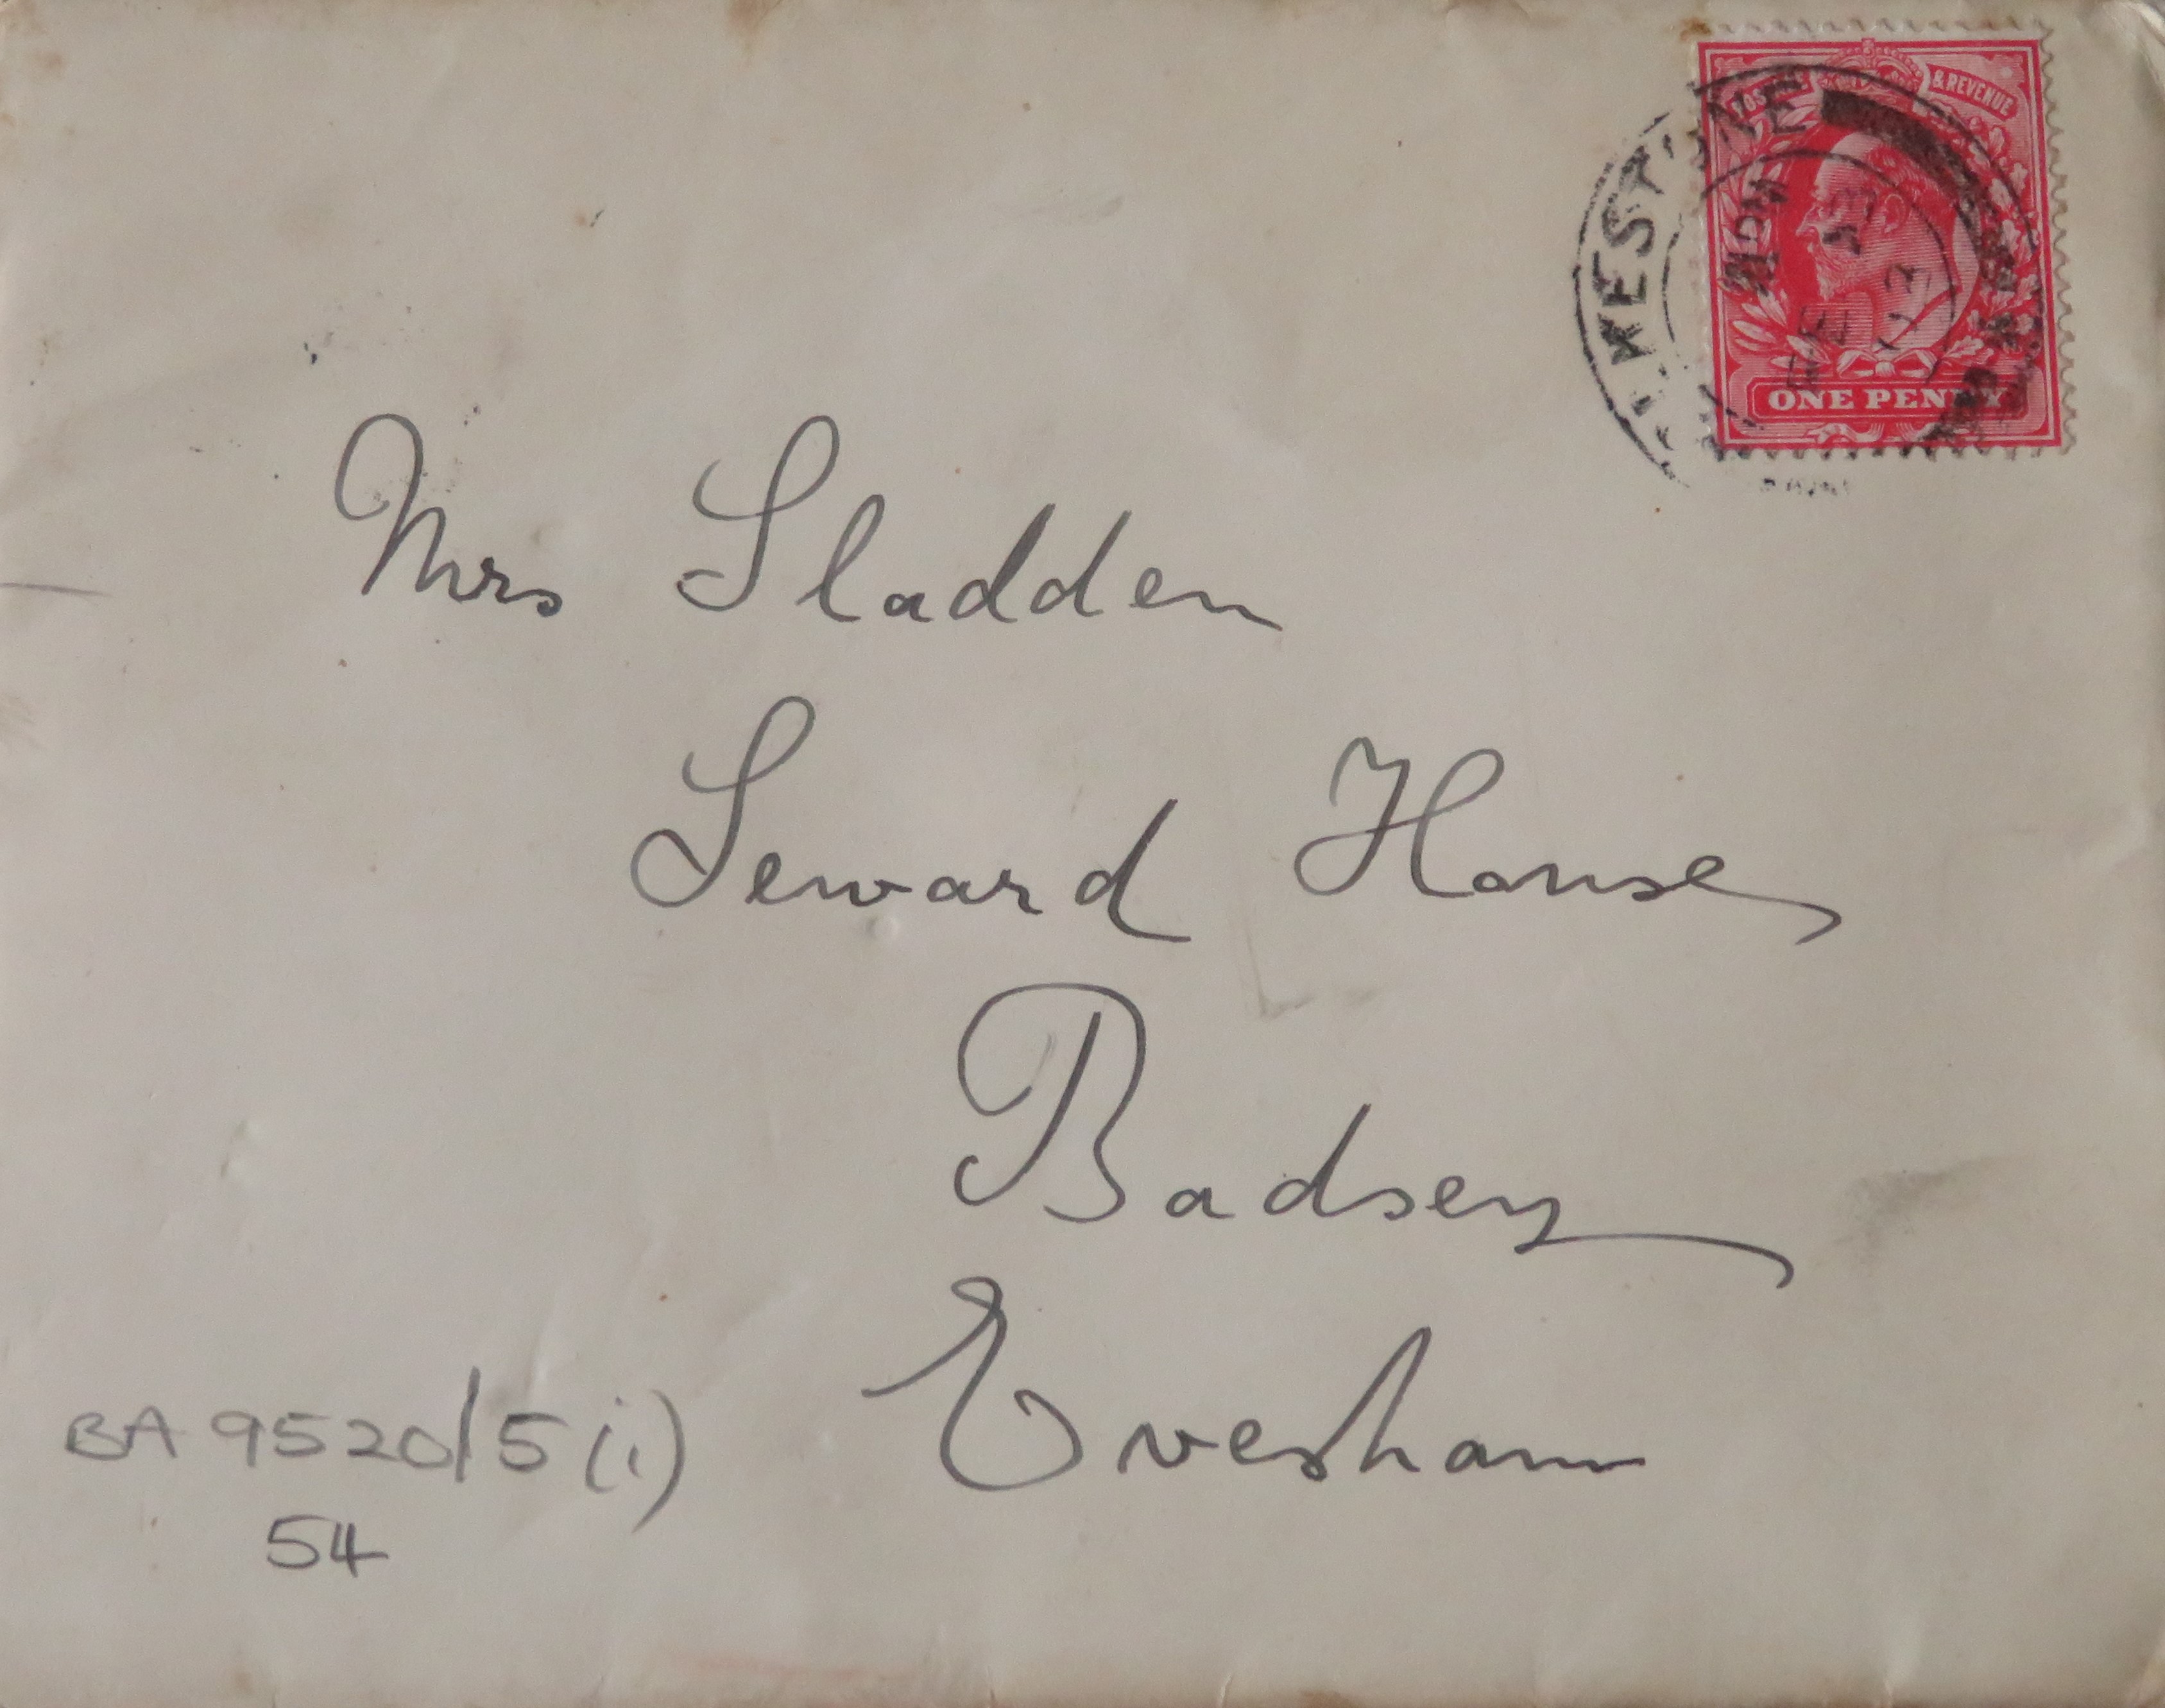 & REVENUE
ONE PENNY
Mrs Sladden
Seward House
Badsey
Evesham
BA 9520/5(i)
54